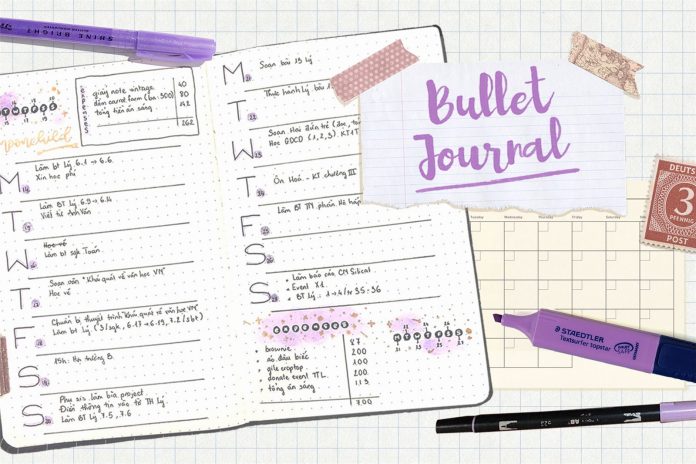 SHINE BRIGHT
EXPENSES
giấy note vintage 40
đầm carrot form (ba: 500) 80
tổng tiền ăn sáng 142
262
M T W T F S S
M
Làm bt Lý 6.1 → 6.6
Xin học phí
T
Làm BT Lý 6.9 → 6.14
Viết từ Anh Văn
W
Học vẽ
Làm bt sgk Toán
T
Soạn văn "Khái quát về văn học VN"
Học vẽ
F
Chuẩn bị thuyết trình "Khái quát về văn học VN"
Làm BT Lý (3/sgk, 6.17 → 6.19, 7.2/sbt)
S
15h: Hội trường B
S
Phụ sis làm bìa project
Điền thông tin vào tờ TH Lý
Làm BT Lý 7.5, 7.6
M
Soạn bài 13 Lý
T
Thực hành Lý bài
W
Soạn Hoá
Học GDCD (1, 2, 3) KT1T
T
Ôn Hoá - KT chương III
F
Làm BT TN phần Hê
S
S
Làm báo cáo CN Silicat
Event X1
BT Lý : 1 → 4/tr 35-36
EXPENSES
brownie 87
áo dầu biếc 200
gile croptop 100
donate event TTL 200
tổng ăn sáng 113
700
M T W T F S S
Bullet
Journal
DEUTS
3
PFENNIG
POST
Tuesday Wednesday Thursday Friday Saturday
STAEDTLER
Textsurfer topstar